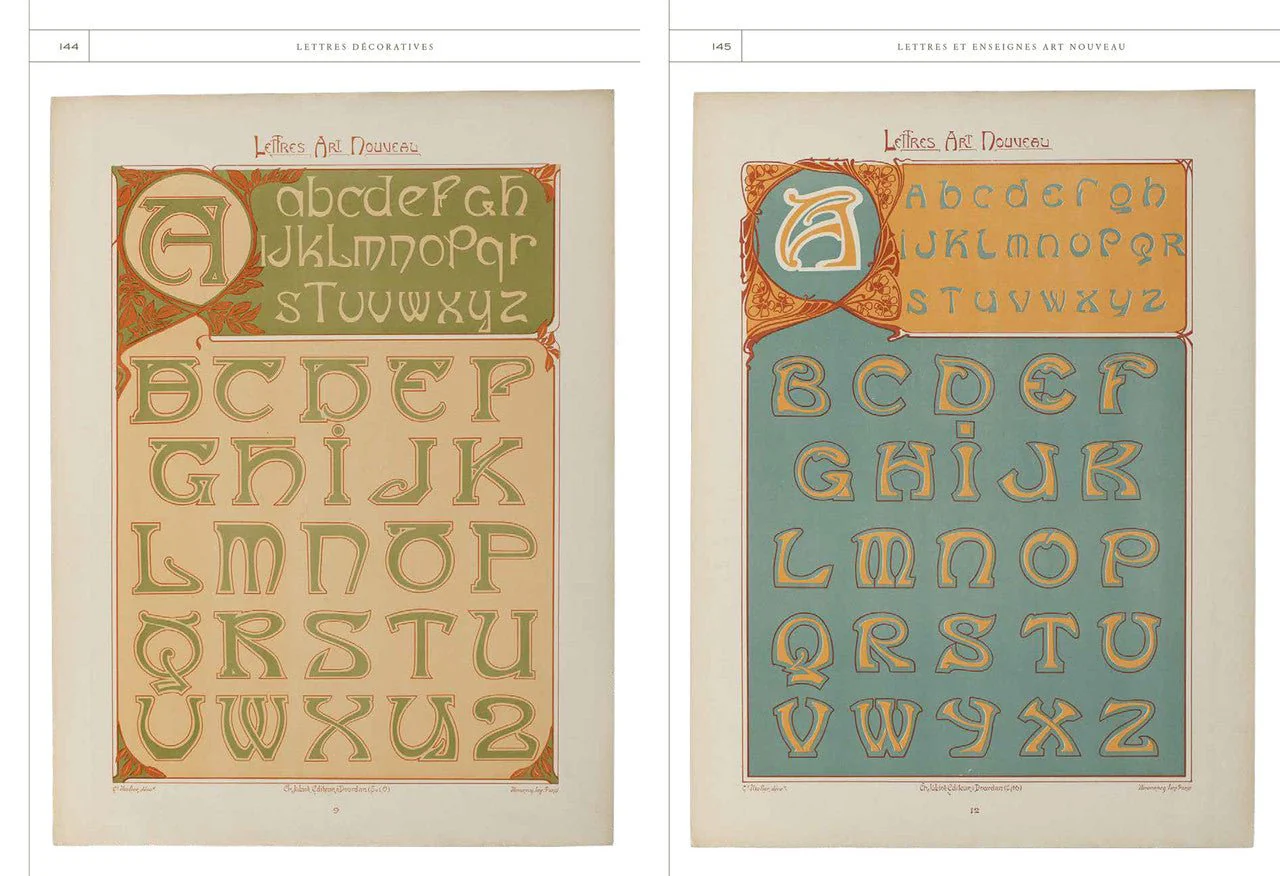 144
LETTRES DÉCORATIVES
Lettres Art Nouveau
A
abcdefGh
iJkLmnoPqr
sTuvwxyz
BCDEF
GHiJK
LMNOP
QRSTU
VWXYZ
Ch. Juliot, Editeur, à Dourdan (S.&O)
9
145
LETTRES ET ENSEIGNES ART NOUVEAU
Lettres Art Nouveau
A
Abcdefgh
iJKLmnoPQR
sTuvwxyz
BCDEF
GHiJK
LMNOP
QRSTU
VWYXZ
Ch. Juliot, Editeur, à Dourdan (S.&O)
12